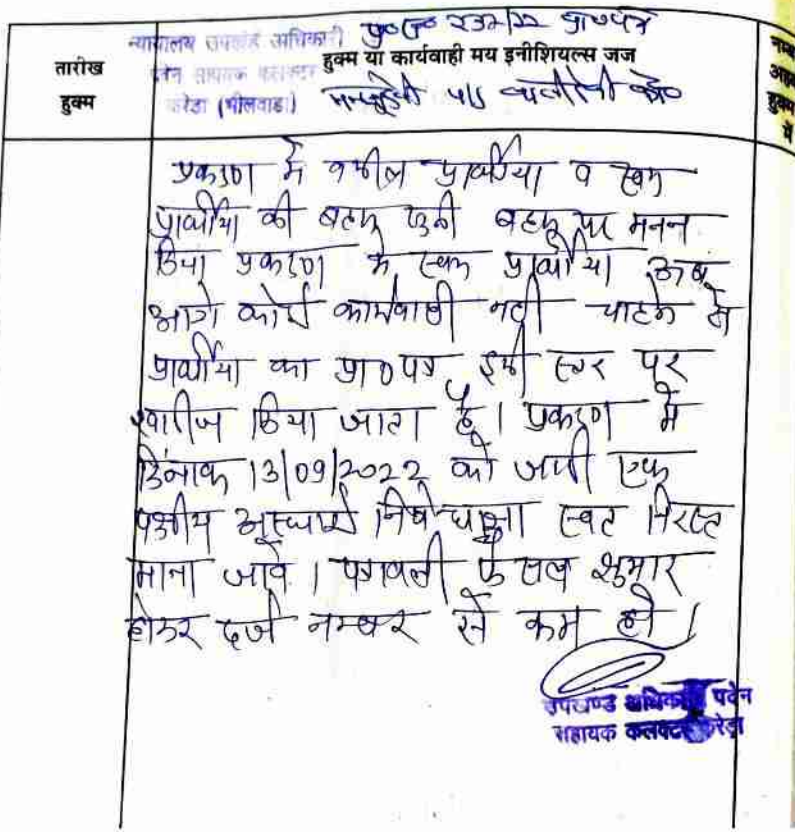 न्यायालय उपखंड अधिकारी
पदेन सहायक कलक्टर
करेडा (भीलवाडा)
तारीख
हुक्म
हुक्म या कार्यवाही मय इनीशियल्स जज
प्रकरण में वकील प्रार्थीया व स्वयं
प्रार्थीया की बहस सुनी बहस पर मनन
किया प्रकरण में स्वयं प्रार्थीया अब
आगे कोई कार्यवाही नही चाहने से
प्रार्थीया का प्रा०पत्र इसी स्तर पर
खारीज किया जाता है। प्रकरण में
दिनांक 13/09/2022 को जारी एक
पक्षीय अस्थाई निषेधाज्ञा स्वत निरस्त
माना जावे। पत्रावली फैसल शुमार
होकर दर्ज नम्बर से कम हो।
उपखण्ड अधिकारी पदेन
सहायक कलक्टर करेडा